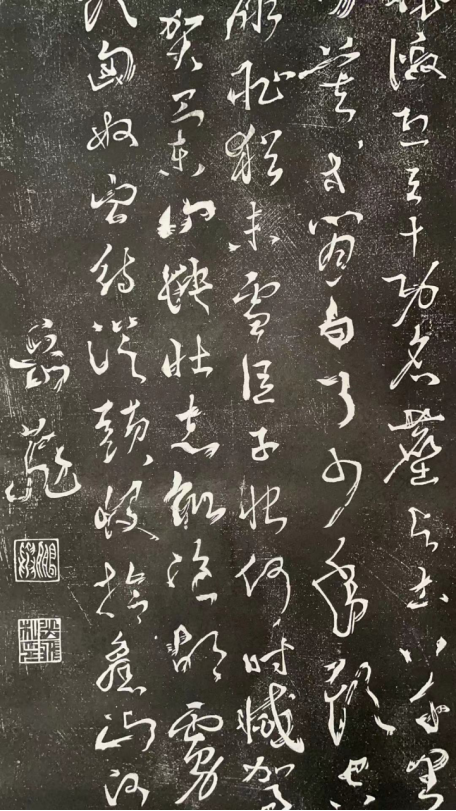 激烈三十功名塵与土八千里
莫等閒白了少年頭空
恥猶未雪臣子恨何時滅駕
賀蘭山缺壯志飢餐胡虜
匈奴血待從頭收拾舊山河
岳飛